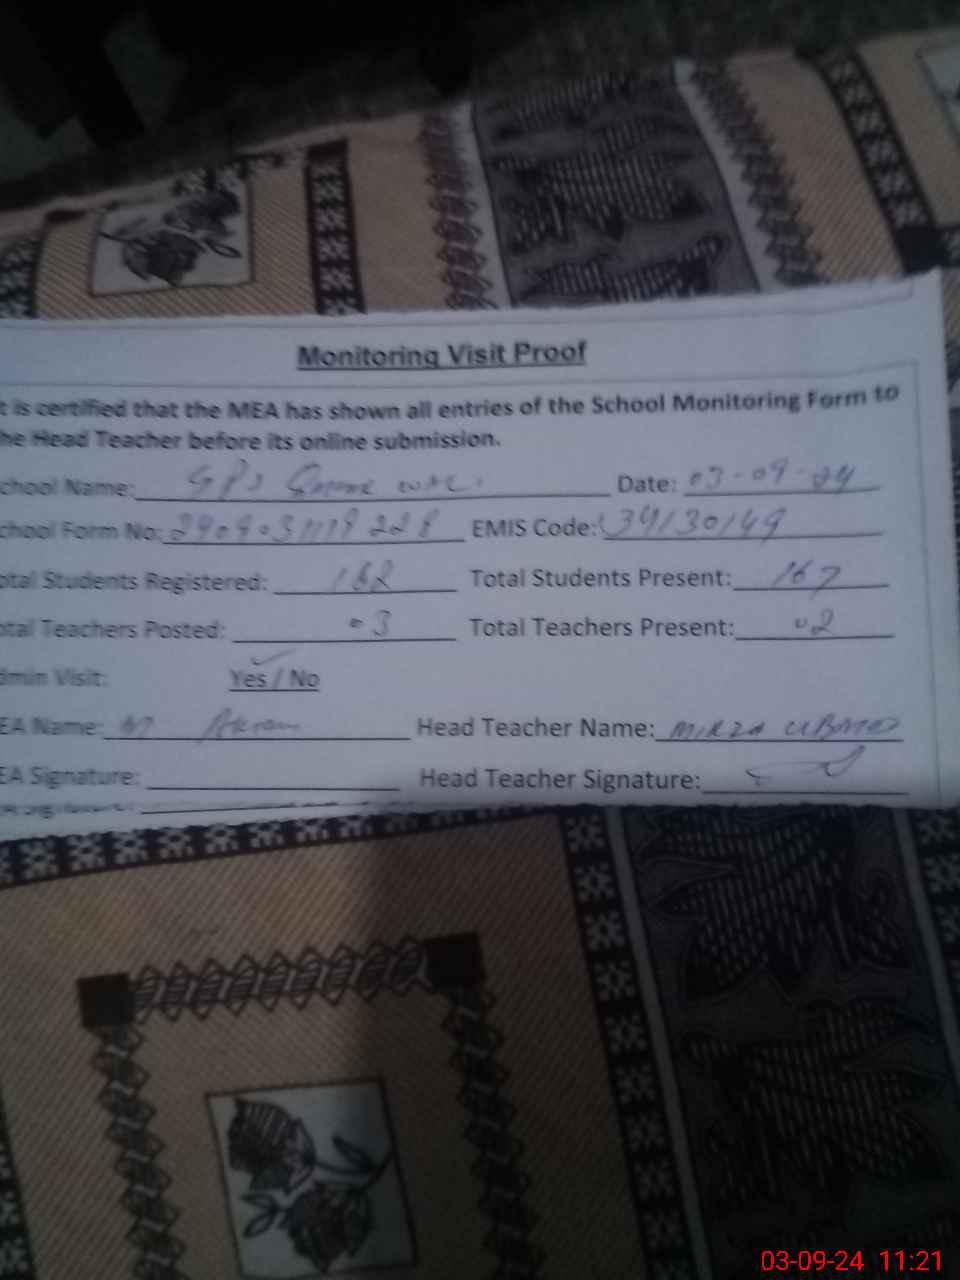 Monitoring Visit Proof
t is certified that the MEA has shown all entries of the School Monitoring Form to
he Head Teacher before its online submission.
chool Name: GPS Date: 03-09-24
chool Form No: EMIS Code: 34130149
otal Students Registered: Total Students Present: 167
otal Teachers Posted: 03 Total Teachers Present: 02
dmin Visit: Yes / No
EA Name: M Akram Head Teacher Name: MIRZA UBAID
EA Signature: Head Teacher Signature:
03-09-24 11:21